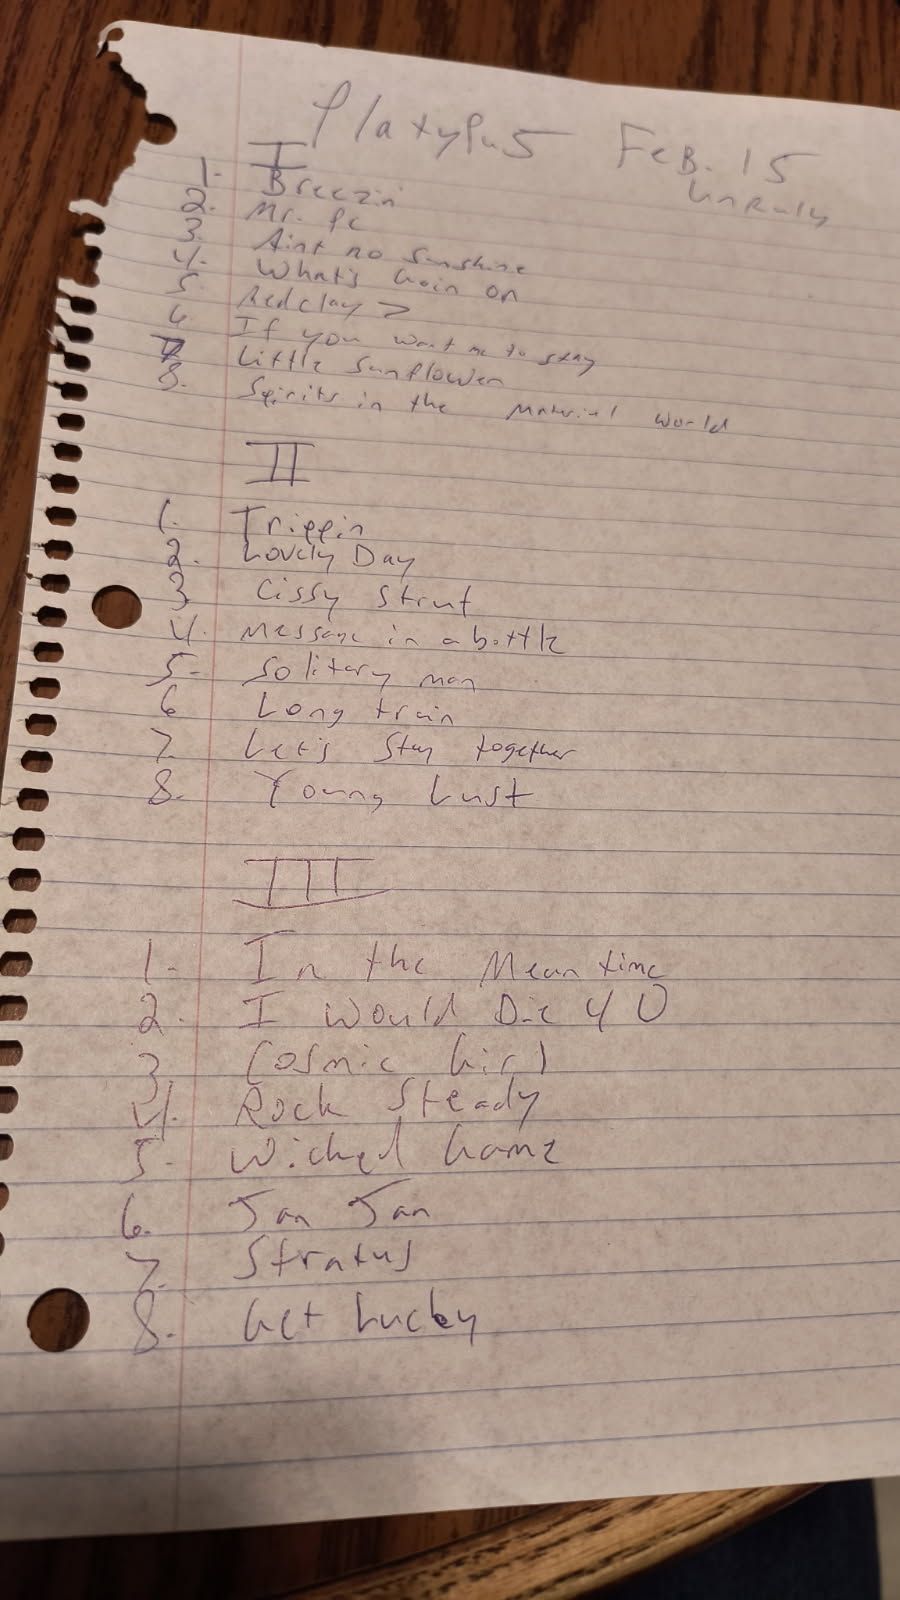 Platypus Feb. 15
Unruly
I
1. Breezin
2. Mr. Pc
3. Aint no sunshine
4. What's Goin on
5. Red clay >
6 If you want me to stay
7 Little Sunflower
8. Spirits in the Material World
II
1. Trippin
2. Lovely Day
3 Cissy Strut
4. Message in a bottle
5- Solitary man
6 Long train
7. Let's Stay together
8. Young Lust
III
1- In the Mean time
2. I Would Die 4 U
3 Cosmic Girl
4. Rock Steady
5- Wicked Game
6. Jan Jan
7. Stratus
8. Get Lucky